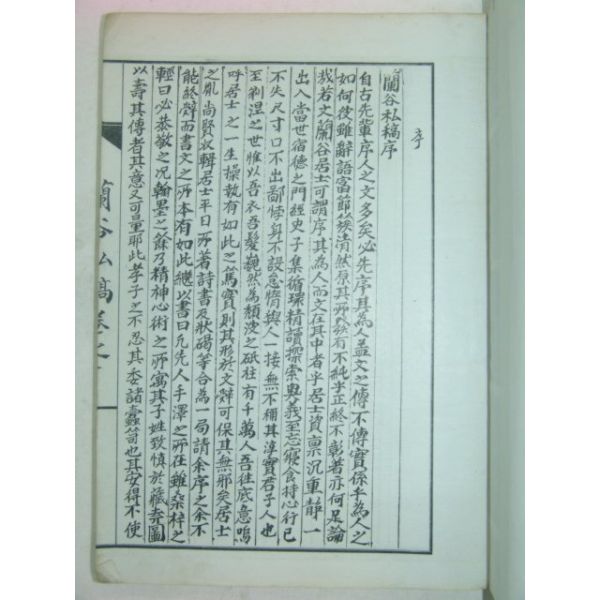 序
蘭谷私稿序
自古先輩序人之文多矣必先序其爲人蓋文之傳不傳實係乎爲人之
如何後雖辭語富節族淸然原其所發有不純乎正終不彰著亦何足論
哉若文蘭谷居士可謂序其爲人而文在其中者乎居士資禀沉重靜一
出入當世宿德之門經史子集循環精讀探索奧義至忘寢食持心行己
不失尺寸口不出鄙悖身不設怠惰與人一接無不稱其淳實君子人也
至剃涅之世惟以吾衣吾髮巍然爲頹波之砥柱有千萬人吾往底意嗚
呼居士之一生操執有如此之篤實則其形於文辭可保其無邪矣居士
之胤尙賢收輯居士平日所著詩書及狀碣等合爲一局請余序之余不
能終辭而書文之所本有如此繼以書曰凡先人手澤之所在雖桑梓之
輕曰必恭敬之况翰墨之餘乃精神心術之所寓其子姓致愼於藏弆圖
以壽其傳者其意又可量耶此孝子之不忍其委諸蠹笥也耳安得不使
蘭谷私稿卷之